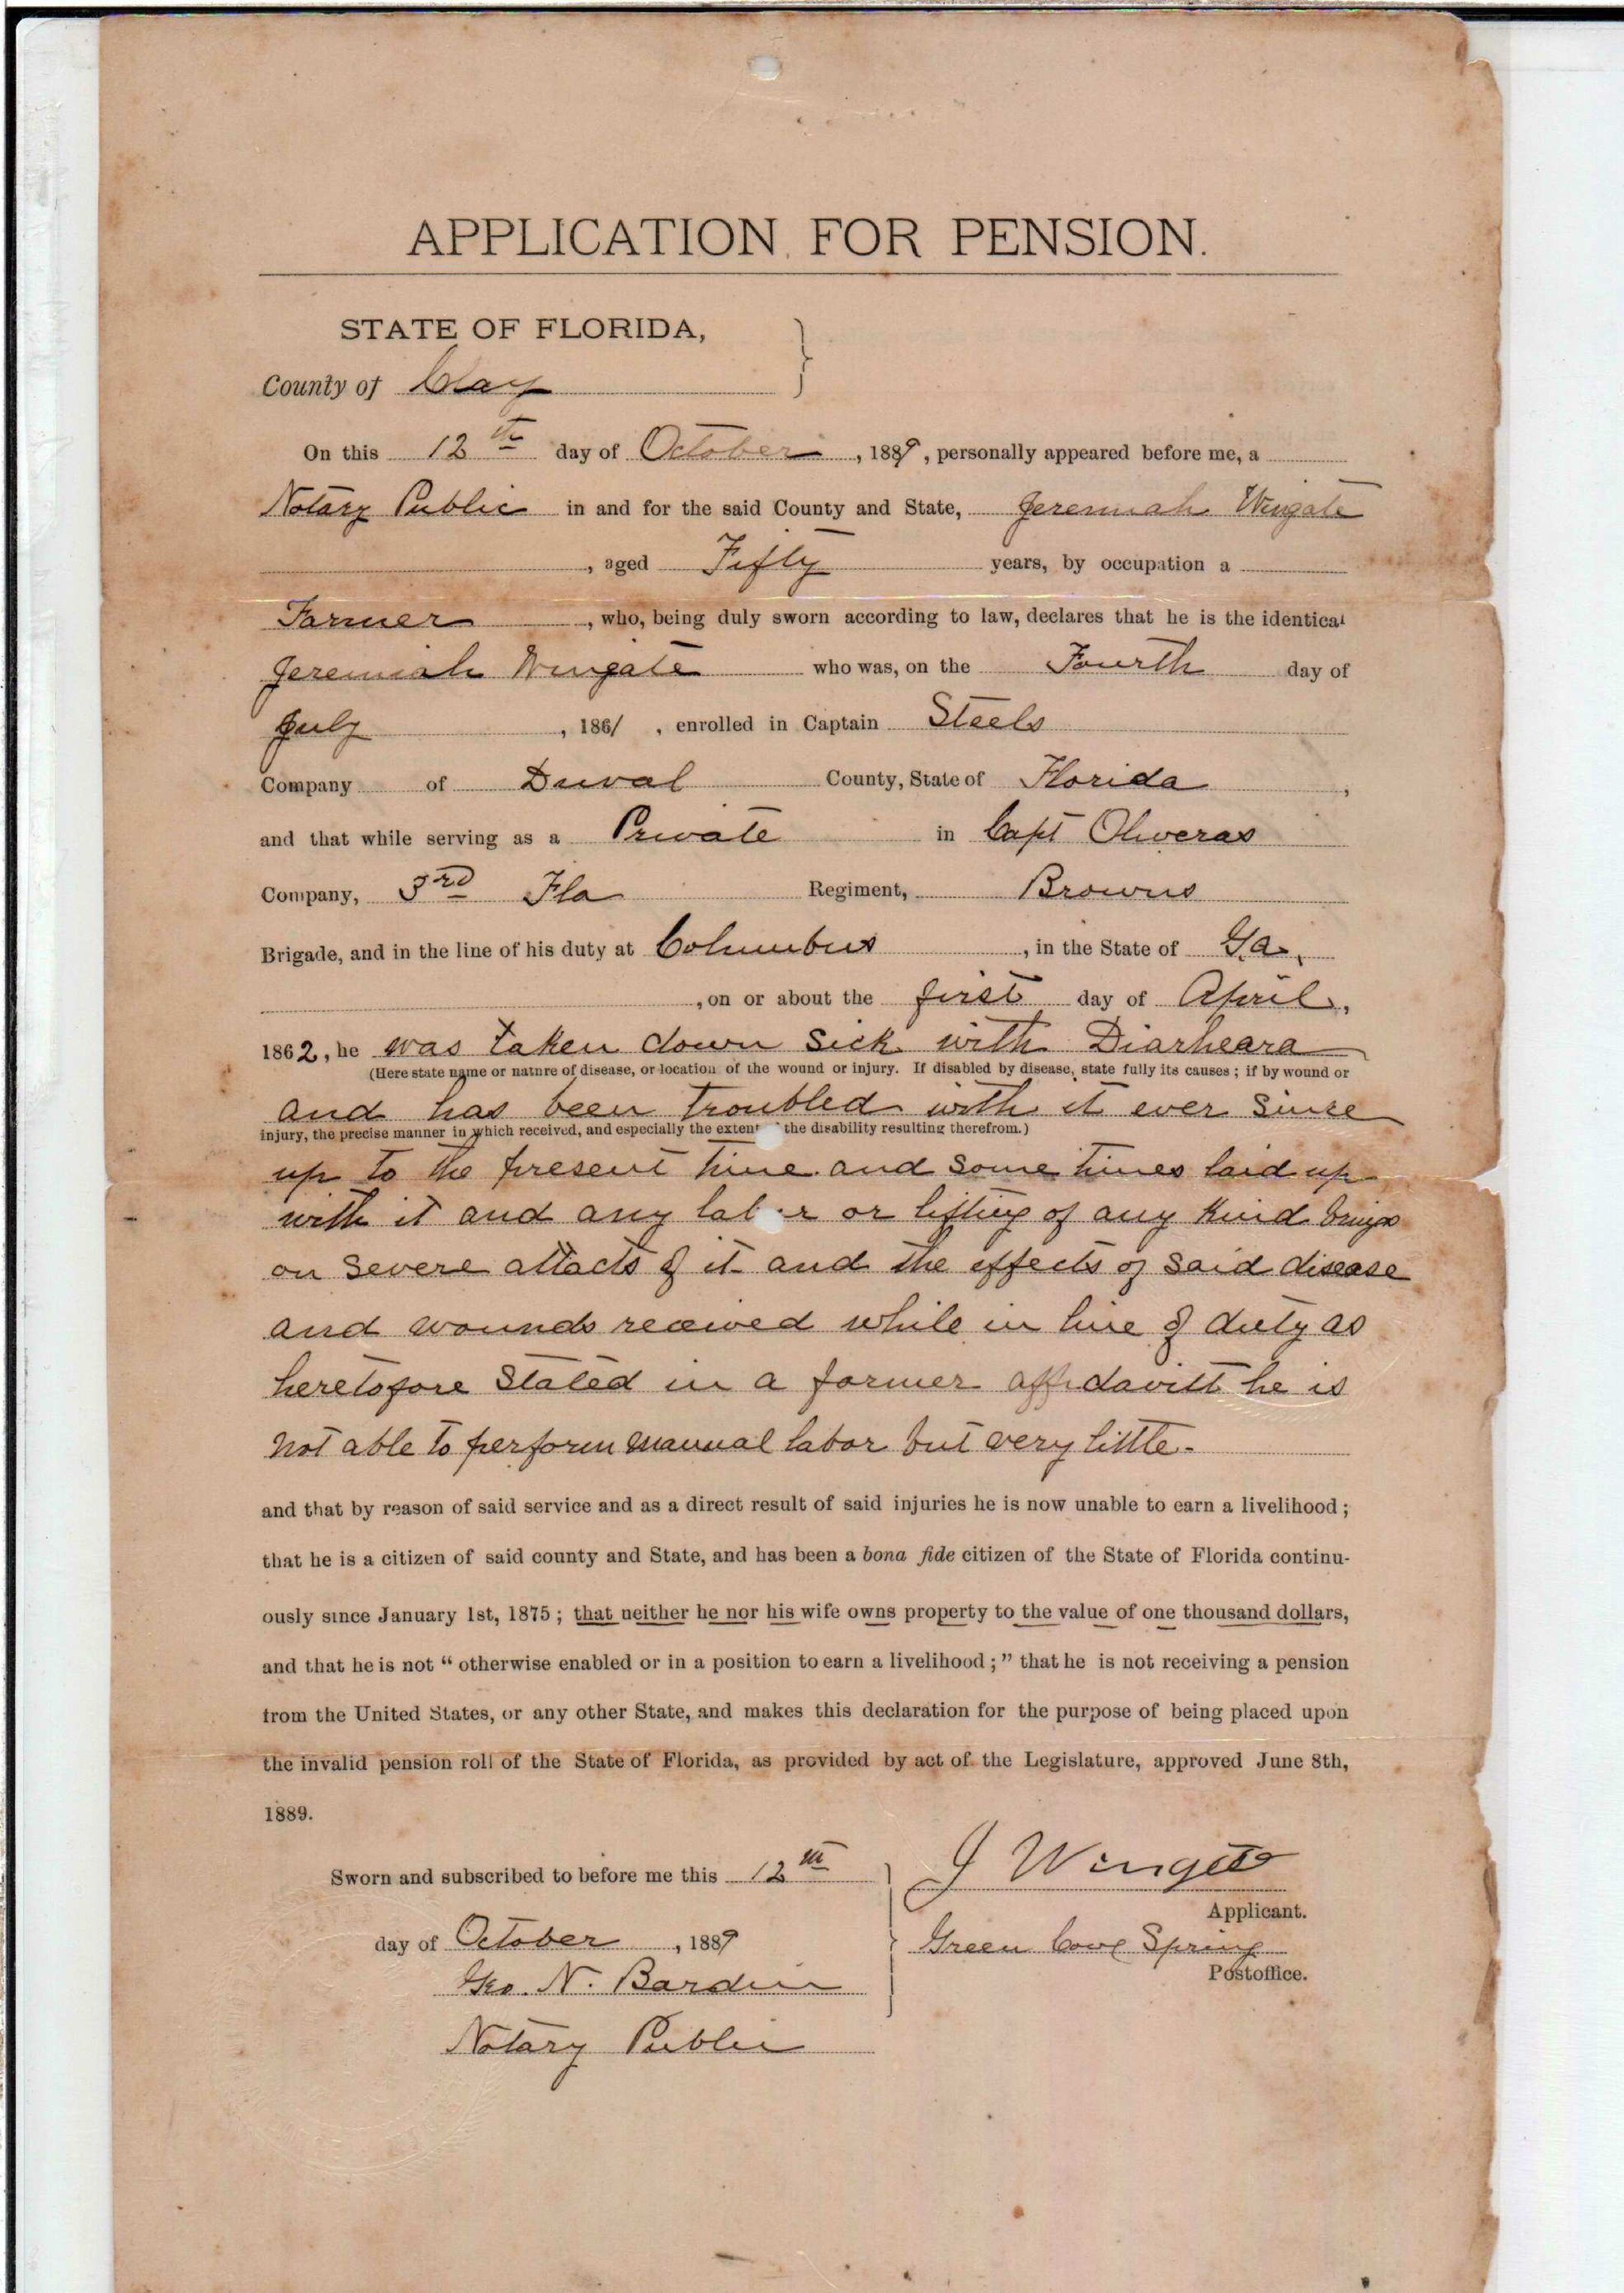 APPLICATION FOR PENSION.
STATE OF FLORIDA,
County of Clay
On this 12th day of October, 1889, personally appeared before me, a
Notary Public in and for the said County and State, Jeremiah Wingate
, aged Fifty years, by occupation a
Farmer, who, being duly sworn according to law, declares that he is the identical
Jeremiah Wingate who was, on the Fourth day of
July, 1861, enrolled in Captain Steels
Company of Duval County, State of Florida,
and that while serving as a Private in Capt Oliveras
Company, 3rd Fla Regiment, Browns
Brigade, and in the line of his duty at Columbus, in the State of Ga.
, on or about the first day of April,
1862, he was taken down sick with Diarheara
(Here state name or nature of disease, or location of the wound or injury. If disabled by disease, state fully its causes; if by wound or
and has been troubled with it ever since
injury, the precise manner in which received, and especially the extent the disability resulting therefrom.)
up to the present time and some times laid up
with it and any labor or lifting of any kind brings
on severe attacts of it and the effects of said disease
and wounds received while in line of duty as
heretofore stated in a former affidavitt he is
not able to perform manual labor but very little-
and that by reason of said service and as a direct result of said injuries he is now unable to earn a livelihood;
that he is a citizen of said county and State, and has been a bona fide citizen of the State of Florida continu-
ously since January 1st, 1875; that neither he nor his wife owns property to the value of one thousand dollars,
and that he is not "otherwise enabled or in a position to earn a livelihood;" that he is not receiving a pension
from the United States, or any other State, and makes this declaration for the purpose of being placed upon
the invalid pension roll of the State of Florida, as provided by act of the Legislature, approved June 8th,
1889.
Sworn and subscribed to before me this 12th
day of October, 1889
Geo. N. Bardin
Notary Public
J Wingate
Applicant.
Green Cove Spring
Postoffice.